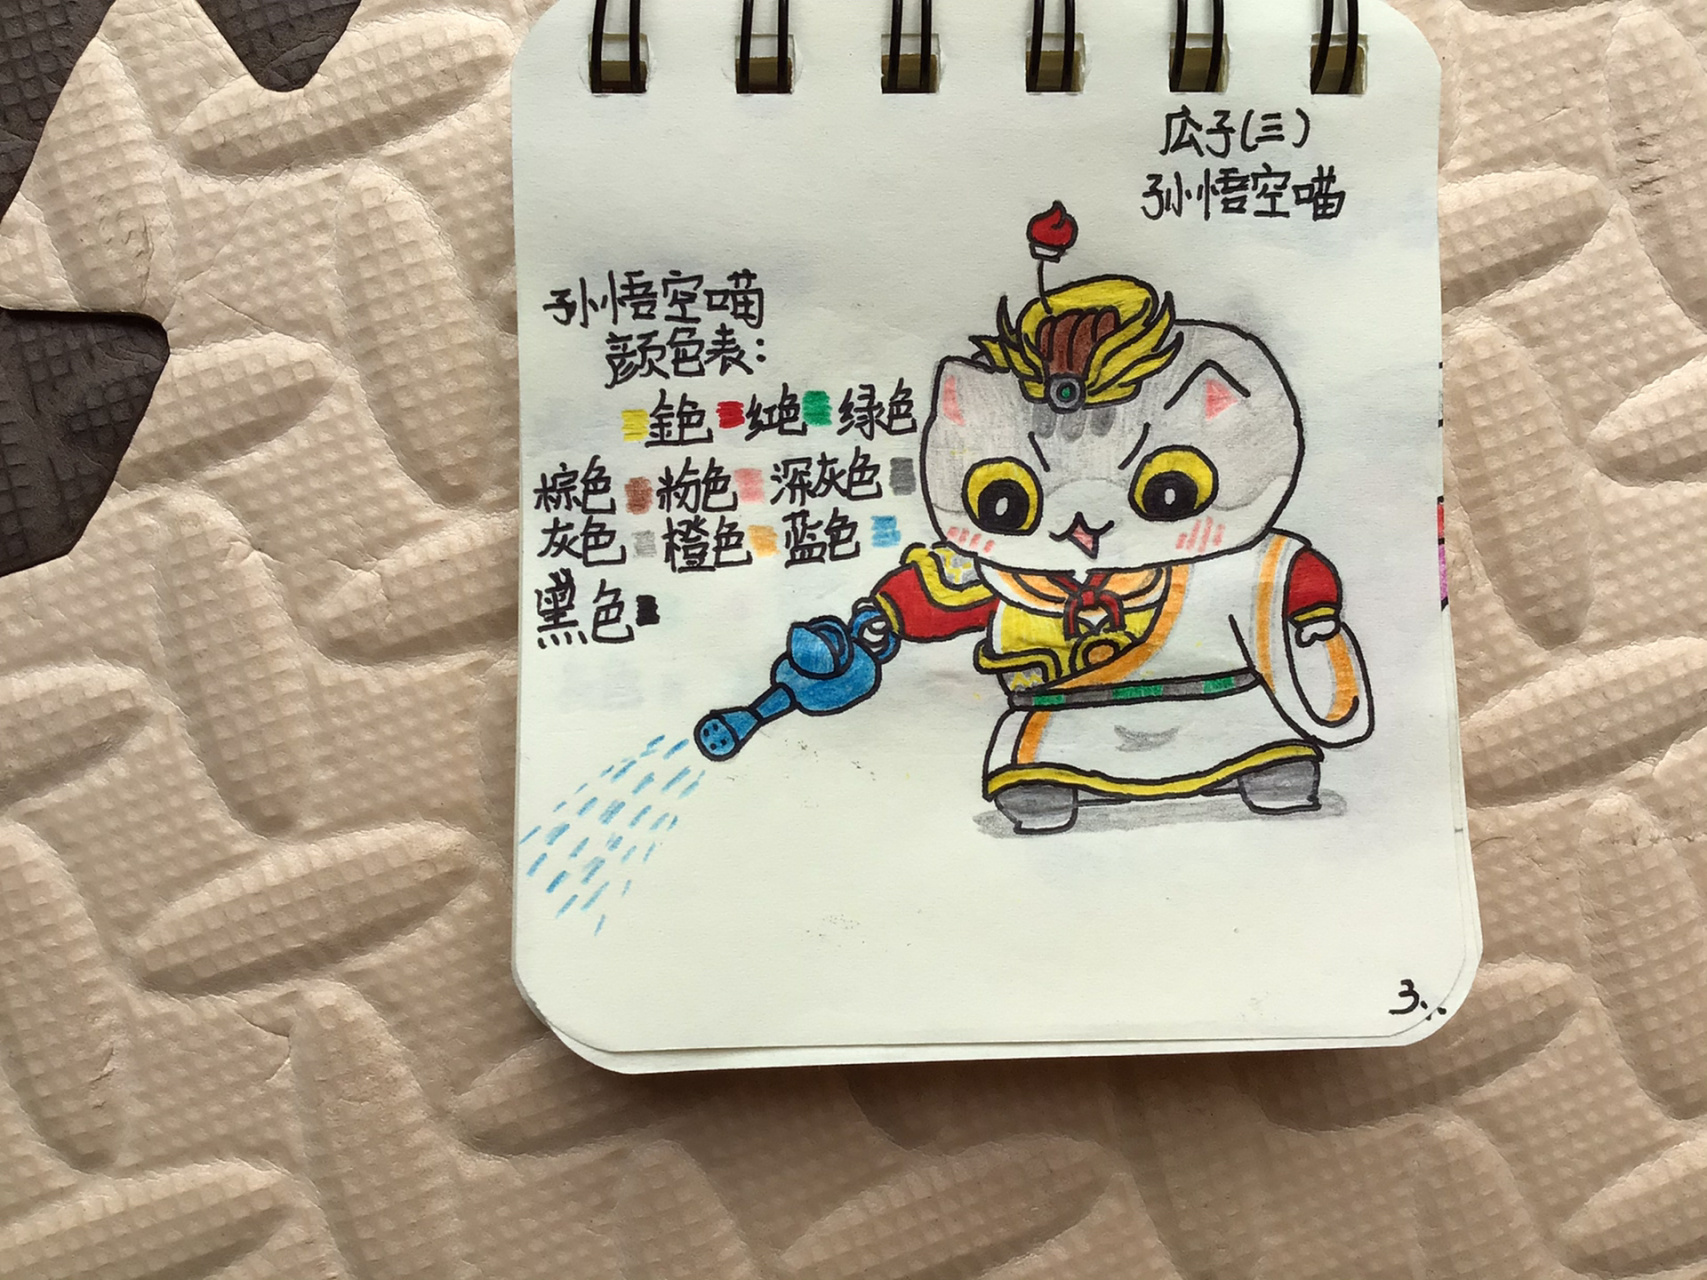 瓜子(三)
孙悟空喵
孙悟空喵
颜色表:
金色 红色 绿色
棕色 粉色 深灰色
灰色 橙色 蓝色
黑色
3.